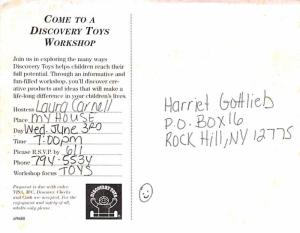 COME TO A
DISCOVERY TOYS
WORKSHOP
Join us in exploring the many ways
Discovery Toys helps children reach their
full potential. Through an informative and
fun-filled workshop, you'll discover cre-
ative products and ideas that will make a
life-long difference in your children's lives.
Hostess Laura Carnell
Place My HOUSE
Day Wed. June 3RD
Time 7:00pm
Please R.S.V.P. by 6/1
Phone 794-5534
Workshop focus TOYS
Prepared to shop with order
VISA, M/C, Discover, Checks
and Cash are accepted. For the
enjoyment and safety of all,
adults only please.
DISCOVERY TOYS
Harriet Gottlieb
P.O. BOX 16
ROCK HILL, NY 12775